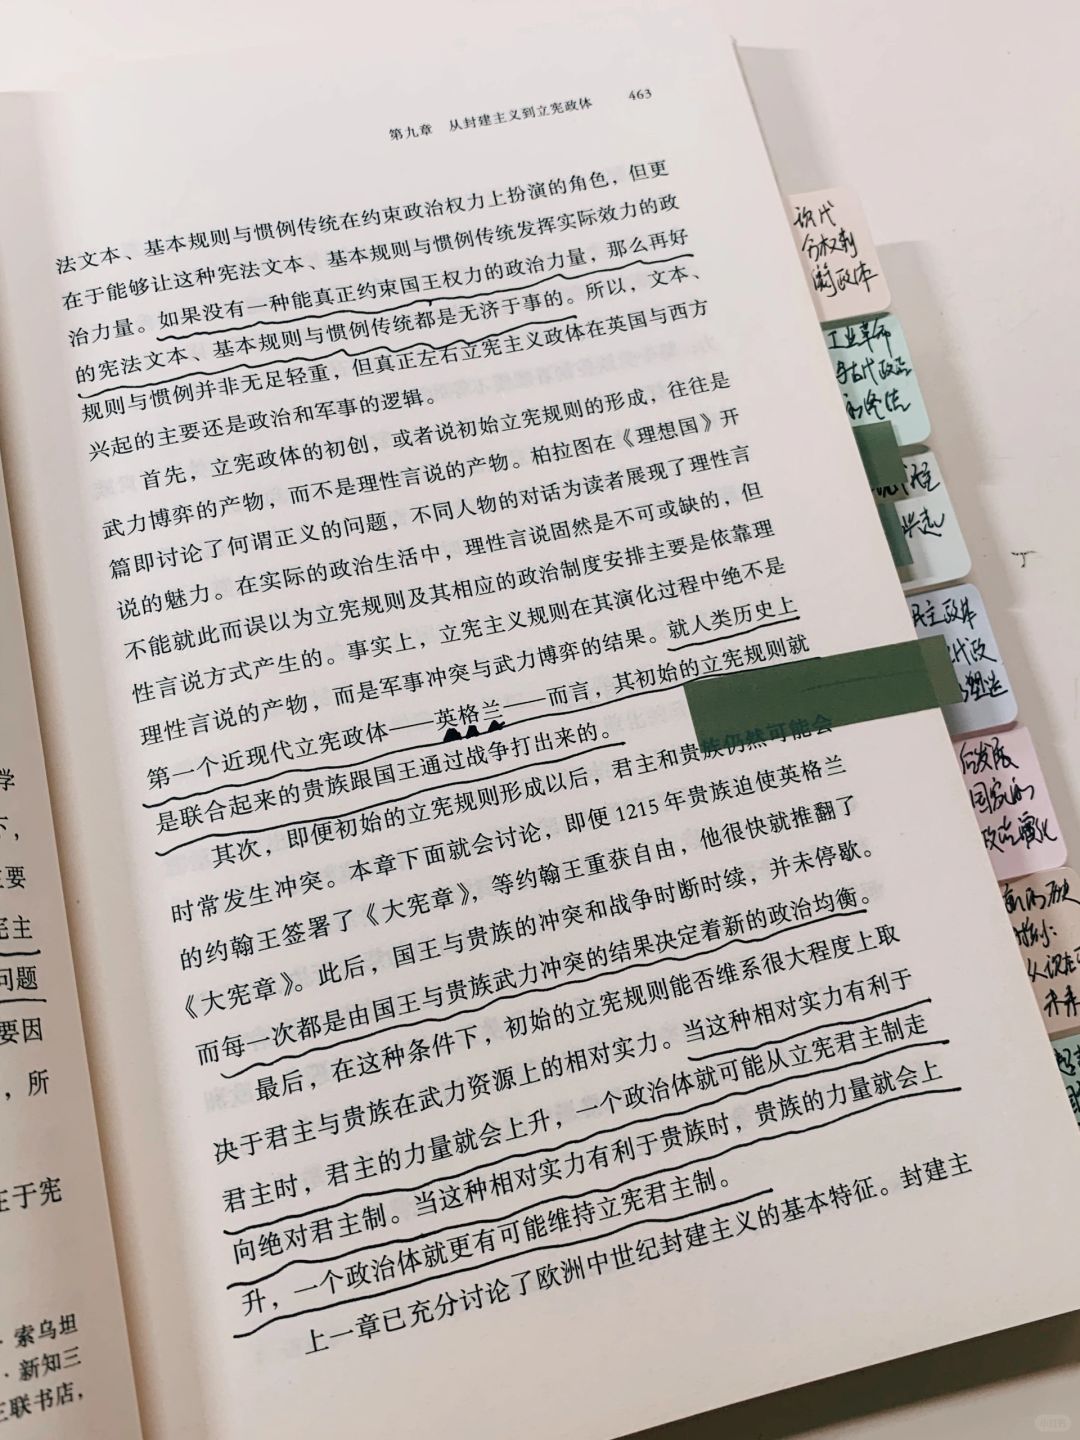 第九章 从封建主义到立宪政体 463
法文本、基本规则与惯例传统在约束政治权力上扮演的角色，但更
在于能够让这种宪法文本、基本规则与惯例传统发挥实际效力的政
治力量。如果没有一种能真正约束国王权力的政治力量，那么再好
的宪法文本、基本规则与惯例传统都是无济于事的。所以，文本、
规则与惯例并非无足轻重，但真正左右立宪主义政体在英国与西方
兴起的主要还是政治和军事的逻辑。
首先，立宪政体的初创，或者说初始立宪规则的形成，往往是
武力博弈的产物，而不是理性言说的产物。柏拉图在《理想国》开
篇即讨论了何谓正义的问题，不同人物的对话为读者展现了理性言
说的魅力。在实际的政治生活中，理性言说固然是不可或缺的，但
不能就此而误以为立宪规则及其相应的政治制度安排主要是依靠理
性言说方式产生的。事实上，立宪主义规则在其演化过程中绝不是
理性言说的产物，而是军事冲突与武力博弈的结果。就人类历史上
第一个近现代立宪政体——英格兰——而言，其初始的立宪规则就
是联合起来的贵族跟国王通过战争打出来的。
其次，即便初始的立宪规则形成以后，君主和贵族仍然可能会
时常发生冲突。本章下面就会讨论，即便1215年贵族迫使英格兰
的约翰王签署了《大宪章》，等约翰王重获自由，他很快就推翻了
《大宪章》。此后，国王与贵族的冲突和战争时断时续，并未停歇。
而每一次都是由国王与贵族武力冲突的结果决定着新的政治均衡。
最后，在这种条件下，初始的立宪规则能否维系很大程度上取
决于君主与贵族在武力资源上的相对实力。当这种相对实力有利于
君主时，君主的力量就会上升，一个政治体就可能从立宪君主制走
向绝对君主制。当这种相对实力有利于贵族时，贵族的力量就会上
升，一个政治体就更有可能维持立宪君主制。
上一章已充分讨论了欧洲中世纪封建主义的基本特征。封建主
学
下，
主要
宪主
问题
要因
，所
在于宪
·索乌坦
·新知三
三联书店，
现代
分权制
衡政体
工业革命
与古代政治
的终结
兴起
民主政体
代政
塑造
后发展
国家的
政治演化